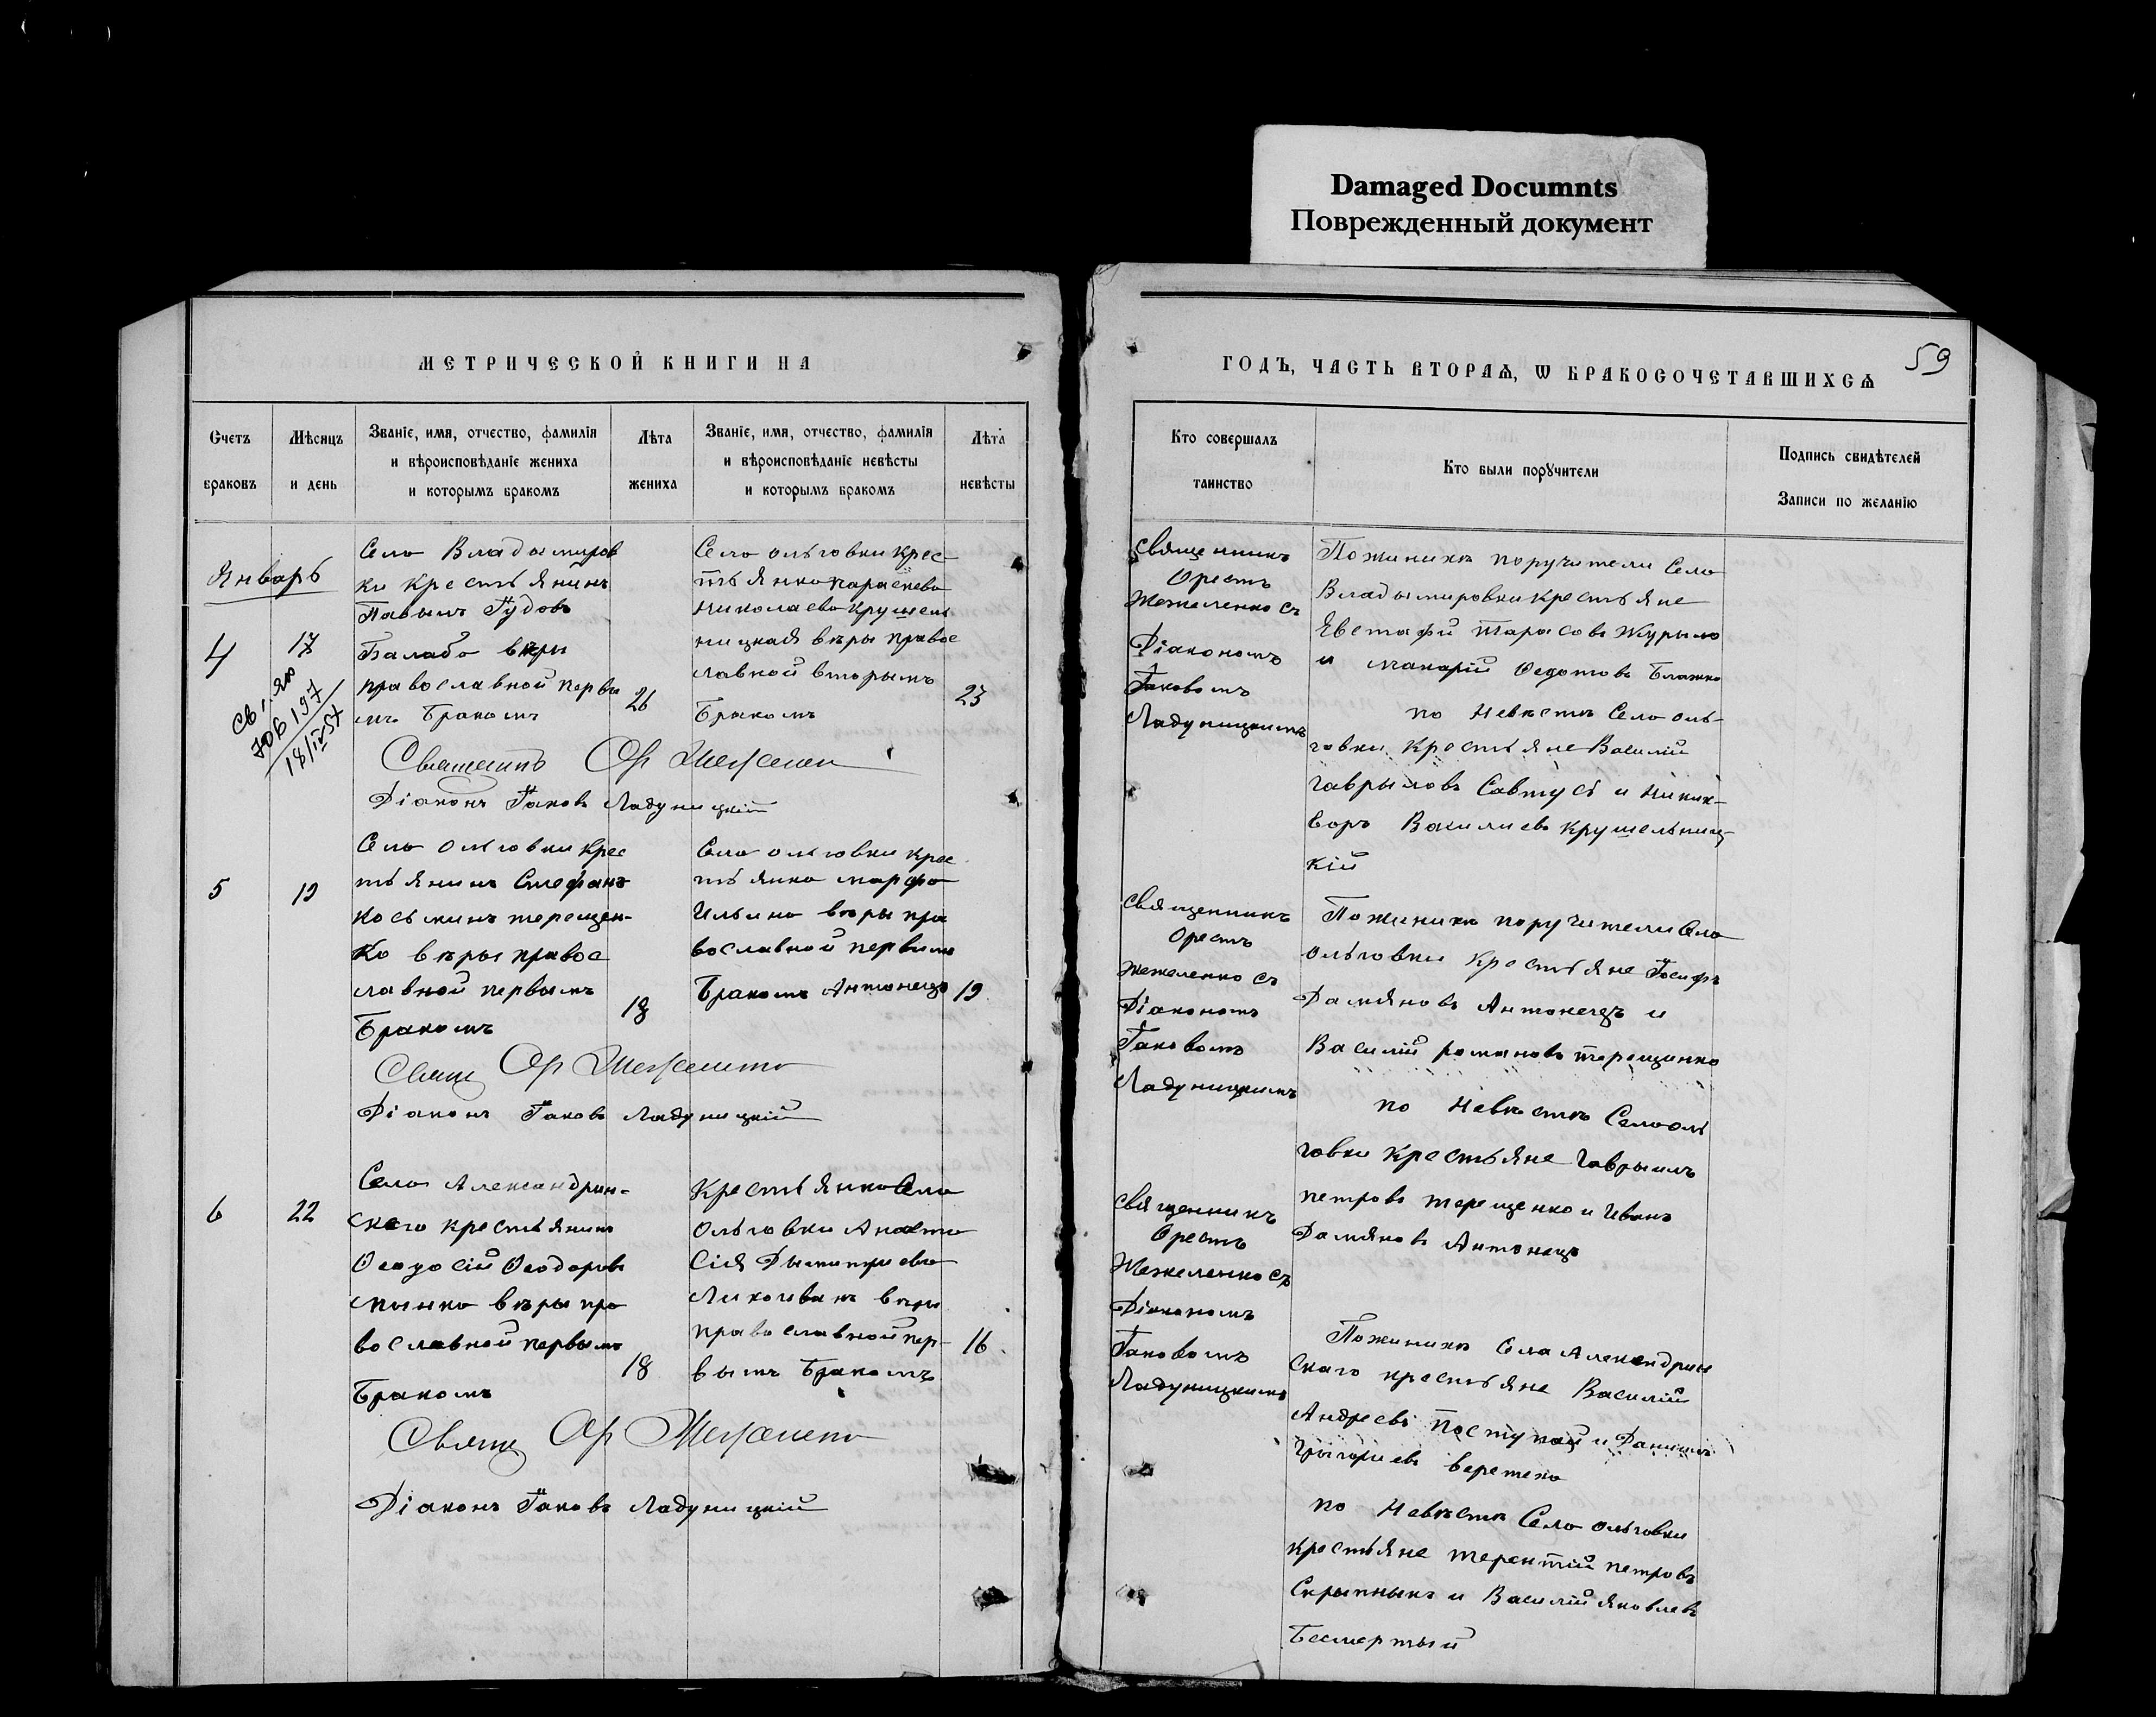 Damaged Documnts
Поврежденный документ
МЕТРИЧЕСКОЙ КНИГИ НА
Счетъ браковъ
Мѣсяцъ и день
Званіе, имя, отчество, фамилія
и вѣроисповѣданіе жениха
и которымъ бракомъ
Лѣта жениха
Званіе, имя, отчество, фамилія
и вѣроисповѣданіе невѣсты
и которымъ бракомъ
Лѣта невѣсты
Январь
4
17
Св. ...
706197
18/IV 57
Село Владымиров
ки Крестьянинъ
Павылъ Іудовъ
Балабо вѣры
православной первы
мъ Бракомъ
26
Село ольговки Крес
тьянко параскева
николаева Крушель
ницкая вѣры правос
лавной вторымъ
Бракомъ
23
Ор Жежелен
Діаконъ Іаковъ Ладуницкій
5
19
Село ольговки Крес
тьянинъ Стефанъ
Косьминъ терещен-
ко вѣры правос
лавной первымъ
Бракомъ
18
Село ольговки Крес
тьянко марфа
Ильина вѣры пра
вославной первымъ
Бракомъ Антонецъ
19
Свящ Ор Жежеленко
Діаконъ Іаковъ Ладуницкій
6
22
Село Александрин-
ского крестьянинъ
Ѳеодосій Ѳеодоровъ
вѣры пра
вославной первымъ
Бракомъ
18
Крестьянко Село
Ольговки Анаста
сія Дымитриева
вѣры
православной пер-
вымъ Бракомъ
16
Свящ Ор Жежелено
Діаконъ Іаковъ Ладуницкій
ГОДЪ, ЧАСТЬ ВТОРАѦ, Ѡ БРАКОСОЧЕТАВШИХСѦ
59
Кто совершалъ таинство
Кто были поручители
Подпись свидѣтелей
Записи по желанію
священникъ
Орестъ
Жежеленко съ
Діакономъ
Іаковомъ
Ладуницкимъ
Пожиниху поручители Село
Владымировки Крестьяне
Евстафій Тарасовъ Журыло
и макарій Ѳедотовъ Блажко
по Невѣстѣ Село оль-
говки Крестьяне Василій
Гаврыловъ Савтусъ и Ники-
форъ Василиевъ Крушельниц-
кій
священникъ
Орестъ
Жежеленко съ
Діакономъ
Іаковомъ
Ладуницкимъ
Пожиниху поручители Село
ольговки Крестьяне Іосифъ
Дамяновъ Антонецъ и
Василій романовъ терещинко
по Невѣстѣ Село оль
говки Крестьяне Гаврыилъ
петровъ терещенко и Иванъ
Дамяновъ Антонецъ
священникъ
Орестъ
Жежеленко съ
Діакономъ
Іаковомъ
Ладуницкимъ
Пожиниху Села Александрин
скаго крестьяне Василій
Андреевъ и Данилъ
Грыгориевъ
по Невѣстѣ Село ольговки
крестьяне терентій петровъ
Скрыпныкъ и Василій яковлевъ
Бесмертный